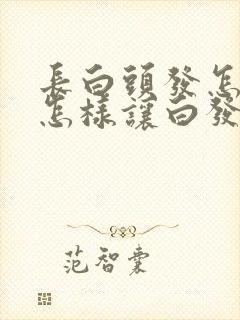 長白頭發怎
怎樣讓白發
范智橐